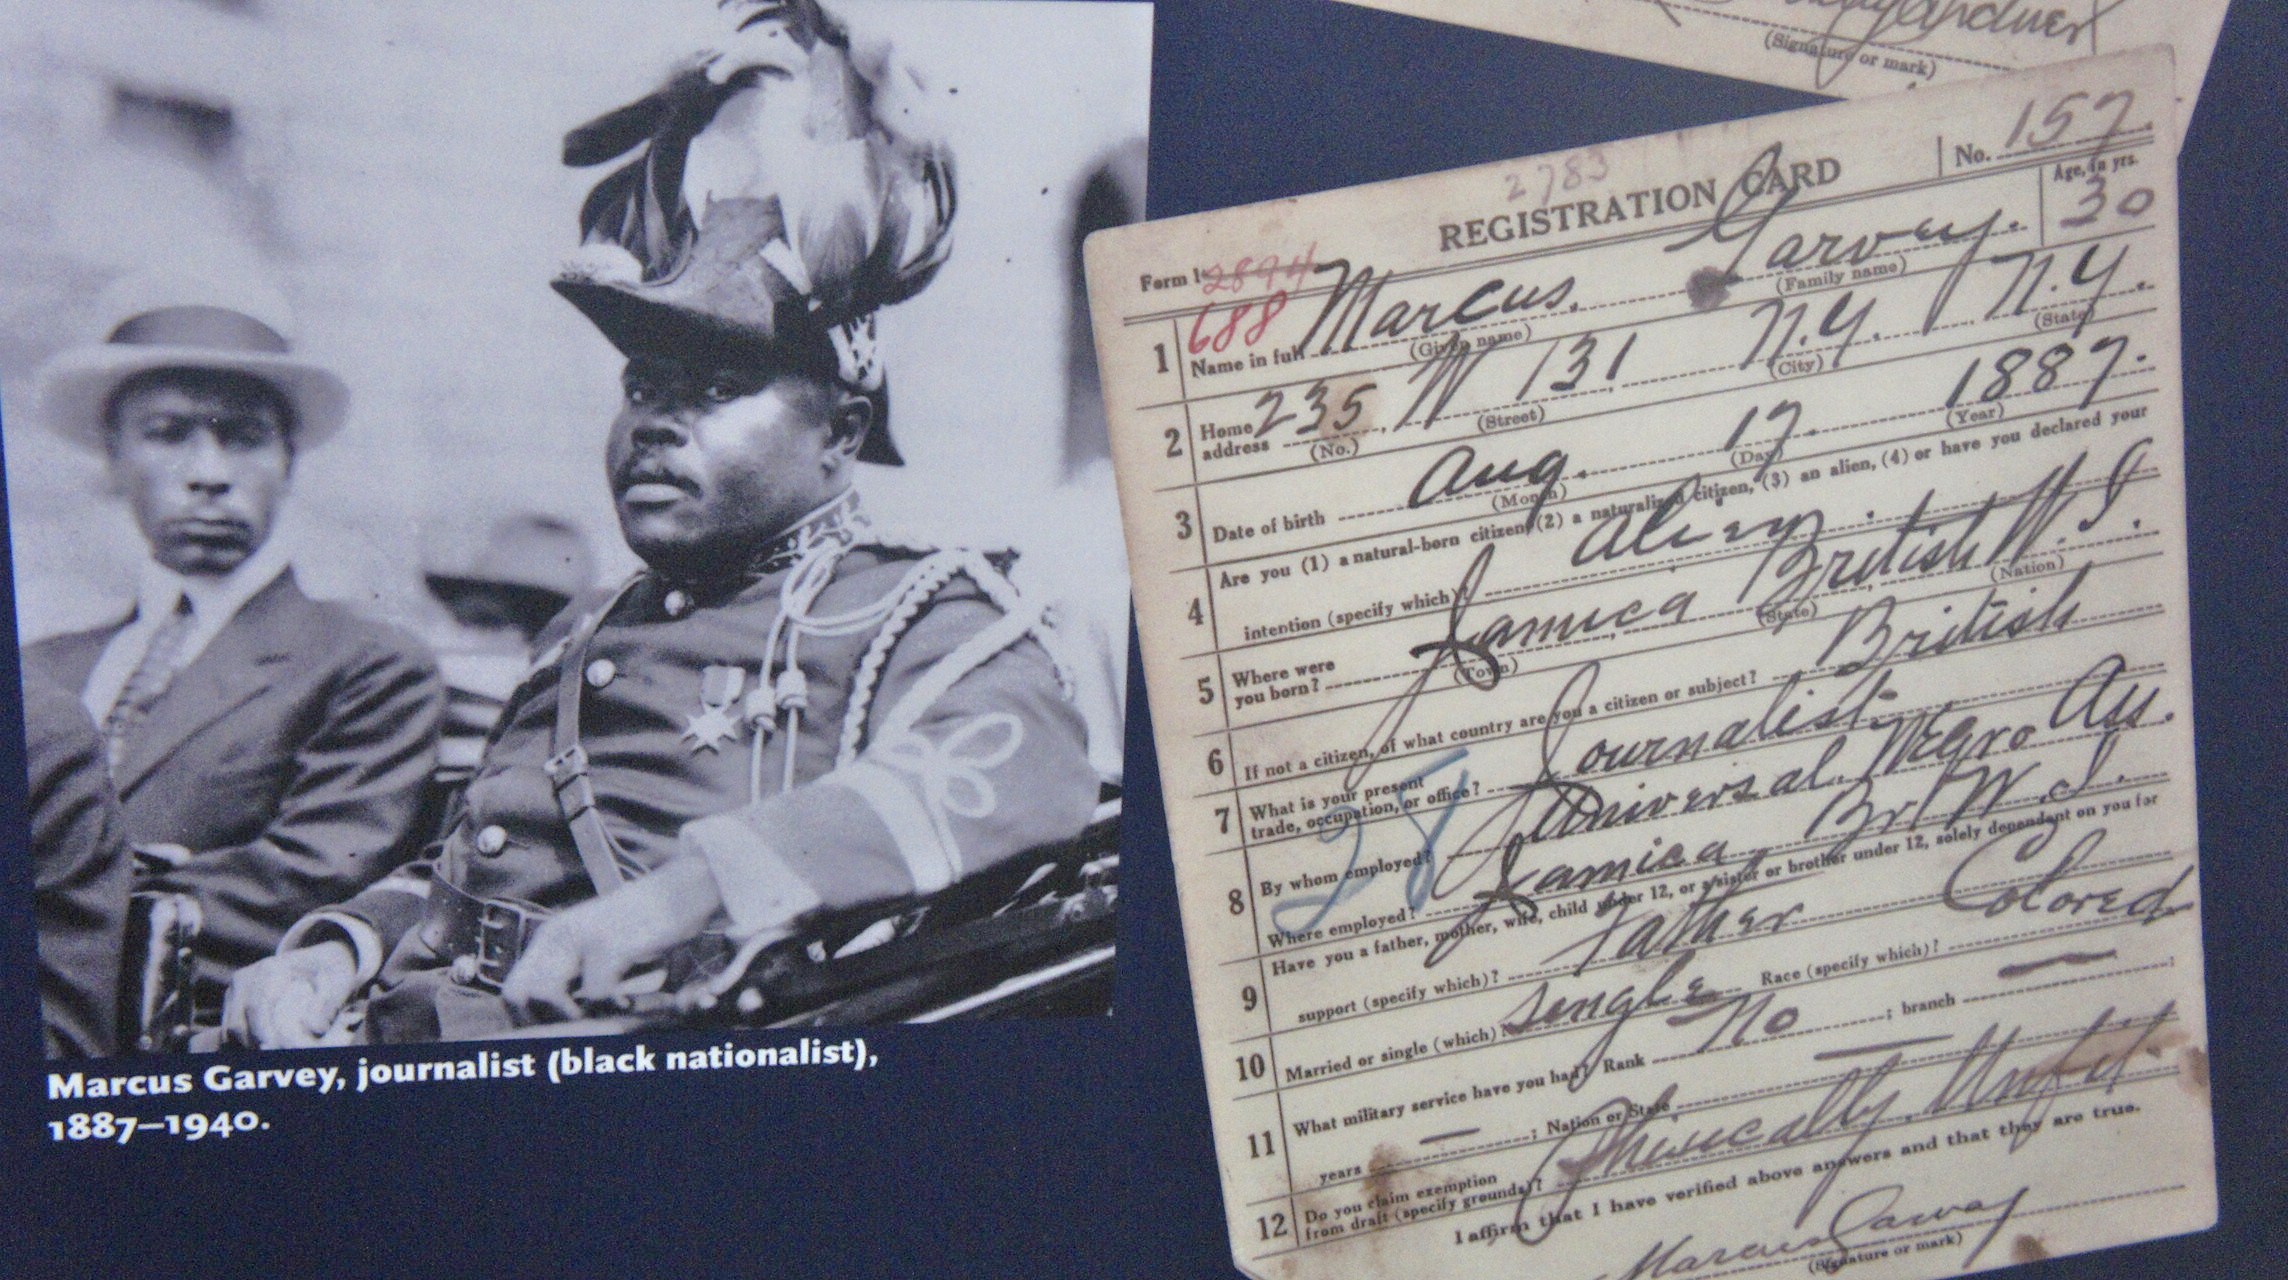 (Signature or mark)
2783
REGISTRATION CARD
No. 157.
Form 1 2894
688
Age, in yrs.
30
1 Name in full Marcus. Garvey.
(Given name) (Family name)
2 Home address 235, W 131, N.Y. N.Y.
(No.) (Street) (City) (State)
3 Date of birth Aug. 17. 1887.
(Month) (Day) (Year)
4 Are you (1) a natural-born citizen, (2) a naturalized citizen, (3) an alien, (4) or have you declared your
intention (specify which)? Alien.
5 Where were you born? Jamica, British W. I.
(Town) (State) (Nation)
6 If not a citizen, of what country are you a citizen or subject? British
7 What is your present
trade, occupation, or office? Journalist
28
8 By whom employed? Universal. Negro Ass.
Where employed? Jamica Br W. I.
9 Have you a father, mother, wife, child under 12, or a sister or brother under 12, solely dependent on you for
support (specify which)? Father
10 Married or single (which)? single Race (specify which)? Colored
11 What military service have you had? Rank No ; branch —
years — ; Nation or State —
12 Do you claim exemption
from draft (specify grounds)? Phisically Unfit.
I affirm that I have verified above answers and that they are true.
Marcus Garvey
(Signature or mark)
Marcus Garvey, journalist (black nationalist),
1887–1940.